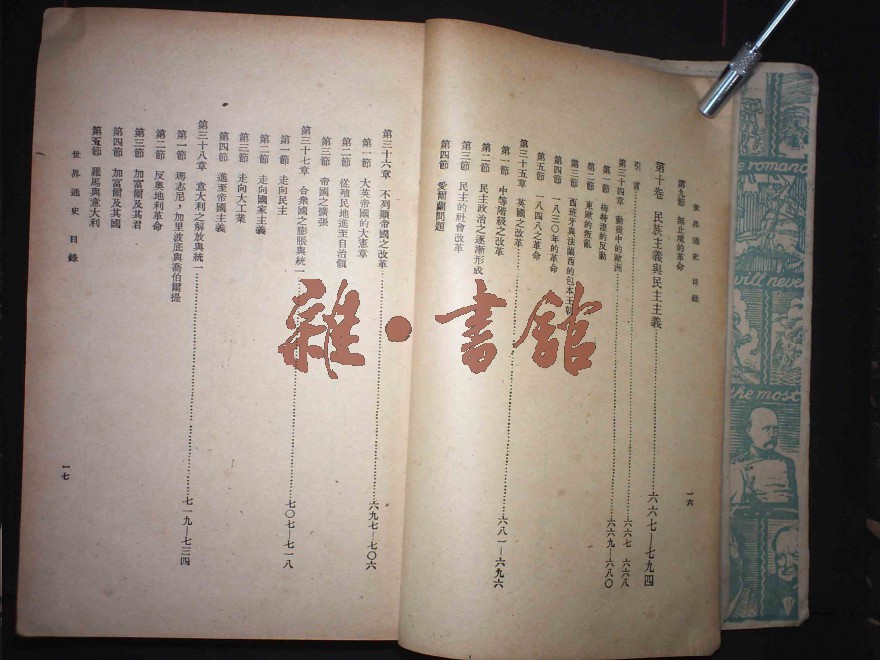 世界通史 目錄
一六
第九節 無止境的革命
第十卷 民族主義與民主主義……六六七—七九四
引言……六六七—六六八
第三十四章 動盪中的歐洲……六六九—六八〇
第一節 梅特涅的反動
第二節 東歐的叛亂
第三節 西班牙與法蘭西的包本王朝
第四節 一八三〇年的革命
第五節 一八四八之革命
第三十五章 英國之改革……六八一—六九六
第一節 中等階級之改革
第二節 民主政治之逐漸形成
第三節 民主的社會改革
第四節 愛爾蘭問題
第三十六章 不列顛帝國之改革……六九七—七〇六
第一節 大英帝國的大憲章
第二節 從殖民地進至自治領
第三節 帝國之擴張
第三十七章 合衆國之膨脹與統一……七〇七—七一八
第一節 走向民主
第二節 走向國家主義
第三節 走向大工業
第四節 進至帝國主義
第三十八章 意大利之解放與統一……七一九—七三四
第一節 瑪志尼，加里波底與喬伯爾提
第二節 反奧地利革命
第三節 加富爾及其君
第四節 加富爾及其國
第五節 羅馬與意大利
世界通史 目錄
一七
雜·書館
romance
will never
the most